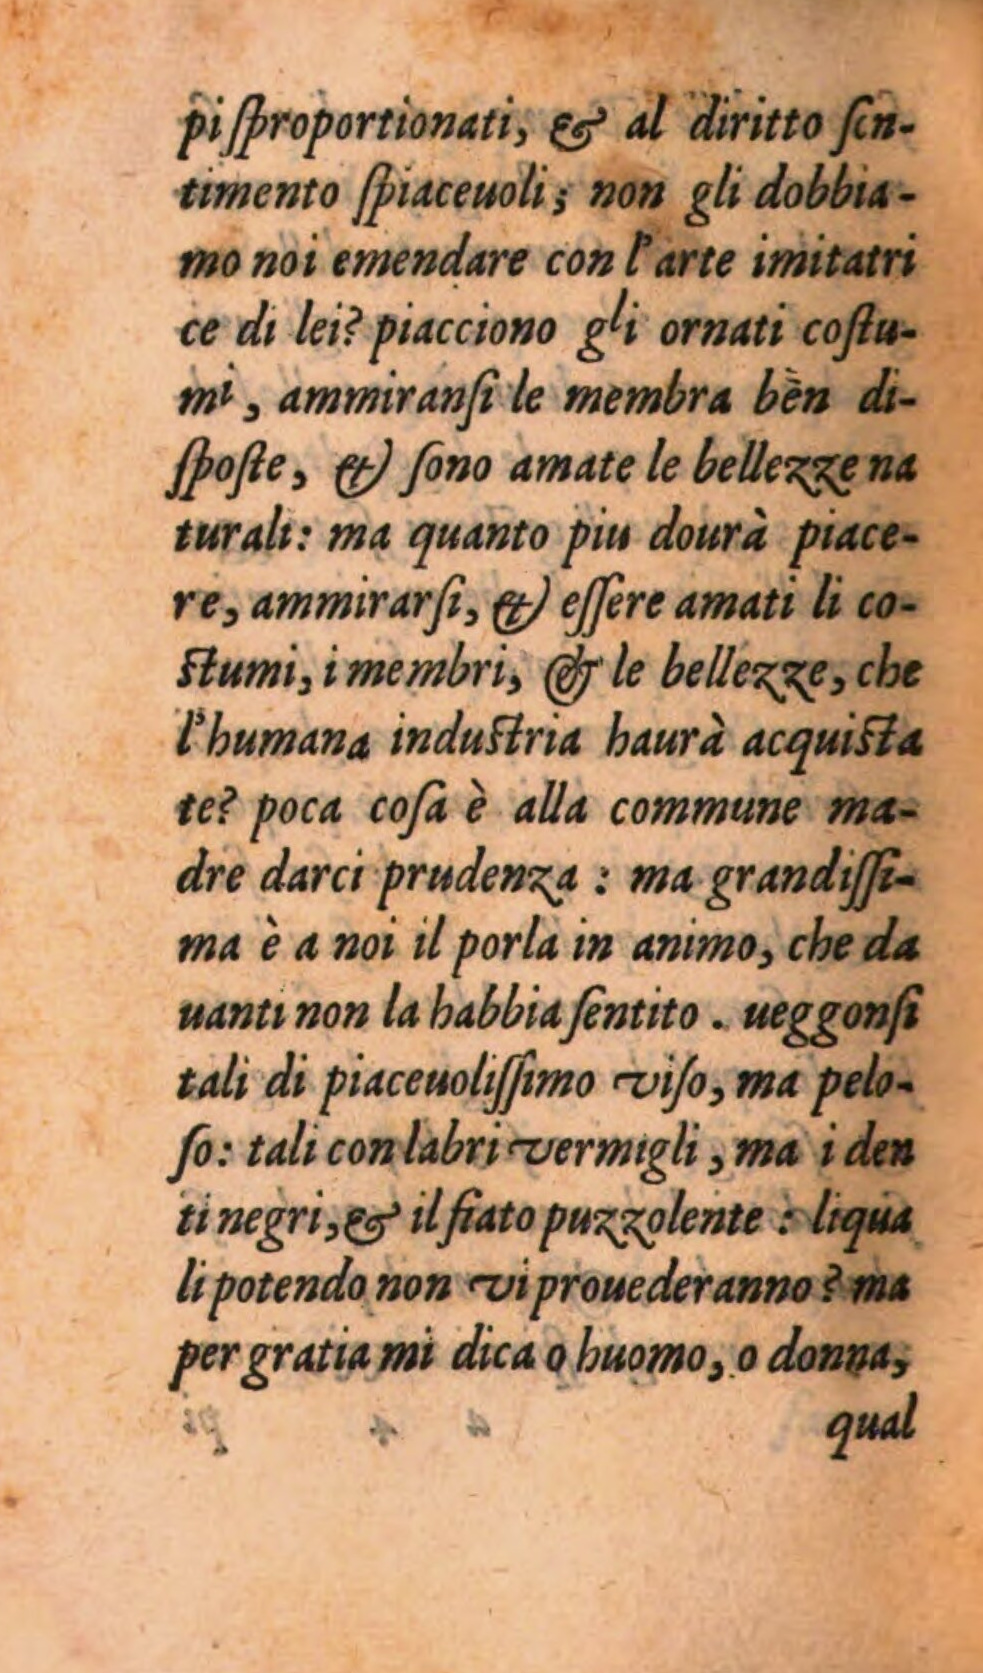 pi ſproportionati, & al diritto ſen-
timento ſpiaceuoli; non gli dobbia-
mo noi emendare con l'arte imitatri
ce di lei? piacciono gli ornati coſtu-
mi, ammiranſi le membra bèn di-
ſpoſte, & ſono amate le bellezze na
turali: ma quanto piu dourà piace-
re, ammirarſi, & eſſere amati li co-
ſtumi, i membri, & le bellezze, che
l'humana induſtria haurà acquiſta
te? poca coſa è alla commune ma-
dre darci prudenza : ma grandiſſi-
ma è a noi il porla in animo, che da
uanti non la habbia ſentito . ueggonſi
tali di piaceuoliſſimo viſo, ma pelo-
ſo: tali con labri vermigli, ma i den
ti negri, & il fiato puzzolente : liqua
li potendo non vi prouederanno? ma
per gratia mi dica o huomo, o donna,
qual